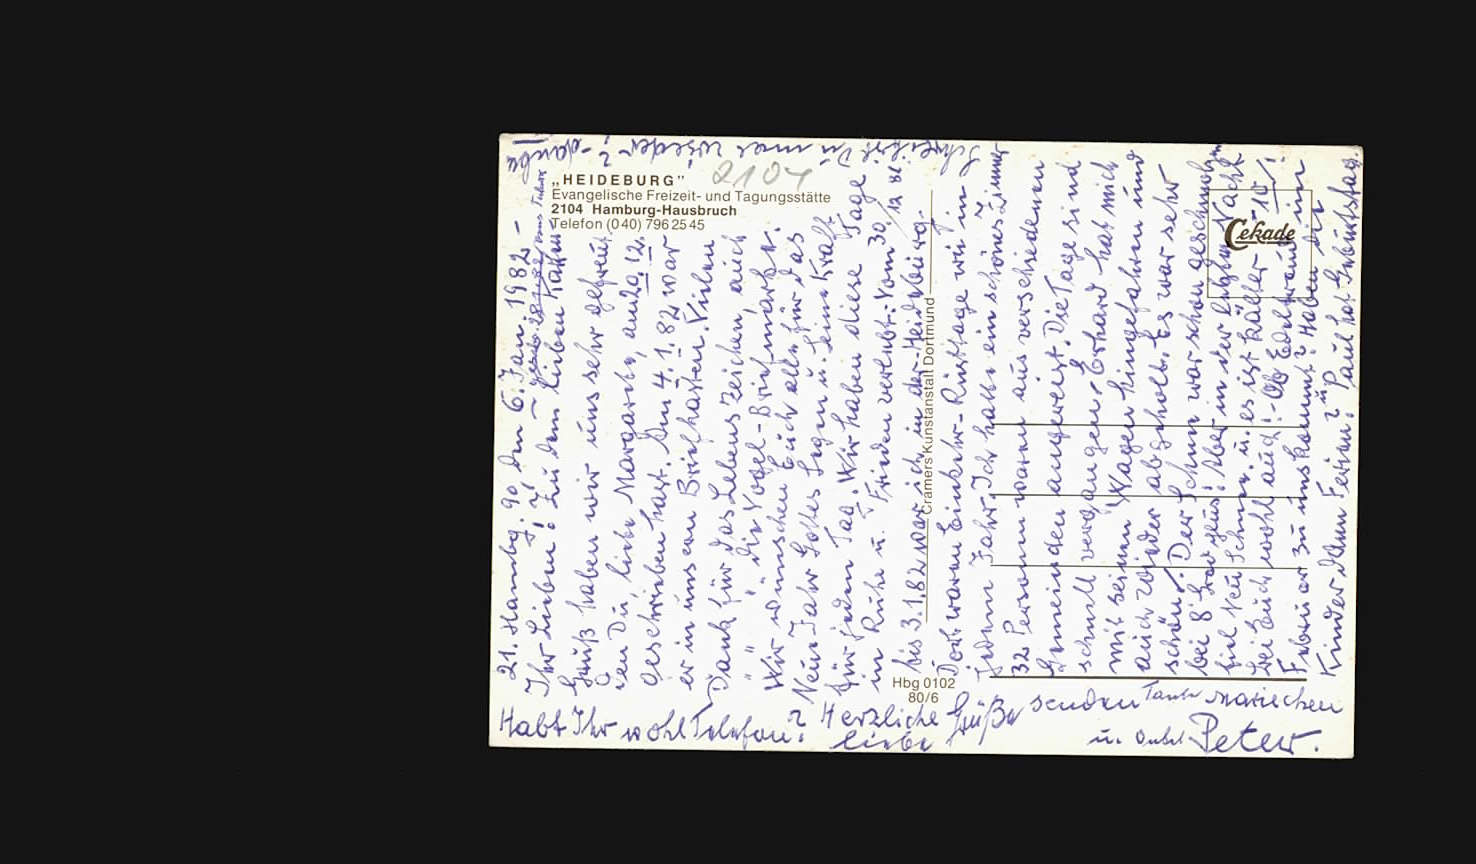 „HEIDEBURG"
Evangelische Freizeit- und Tagungsstätte
2104 Hamburg-Hausbruch
Telefon (040) 7962545
2104
21. Hambg. 90 den 6. Jan. 1982 -
Ihr Lieben! Zu den lieben
Gruß haben wir uns sehr gefreut
den Du, liebe Margarete, am
geschrieben hast. Am 4.1.82 war
er in uns ern Briefkasten. Vielen
Dank für das Lebenszeichen, auch
" " " die Vogel-Briefmarke.
Wir wünschen Euch alles für das
Neue Jahr Gottes Segen u. seine Kraft
für jeden Tag. Wir haben diese Tage
in Ruhe u. Frieden verlebt. Vom 30.12.81
bis 3.1.82 war ich in der Heideburg.
Dort waren Einkehr-Rüsttage wie in
jedem Jahr. Ich hatte ein schönes Zimmer
32 Personen waren aus verschiedenen
Gemeinden angereist. Die Tage sind
schnell vergangen. Erhard hat mich
mit seinen Wagen hingefahren und
auch wieder abgeholt. Es war sehr
schön. Der Schnee war schon geschmolzen
bei 8 Grad plus! Aber in der Nacht
fiel Neu Schnee u. es ist kälter -10!
bei Euch wohl auch! - Ob Edeltraud im
Februar zu uns kommt? Haben die
Kinder dann Ferien? Paul hat Geburtstag.
Schreibst Du mal wieder? - danke
Habt Ihr wohl Telefon? Herzliche Grüße senden Tante Mariechen
liebe
u. Onkel Peter.
Cramers Kunstanstalt Dortmund
Hbg 0102
80/6
Cekade